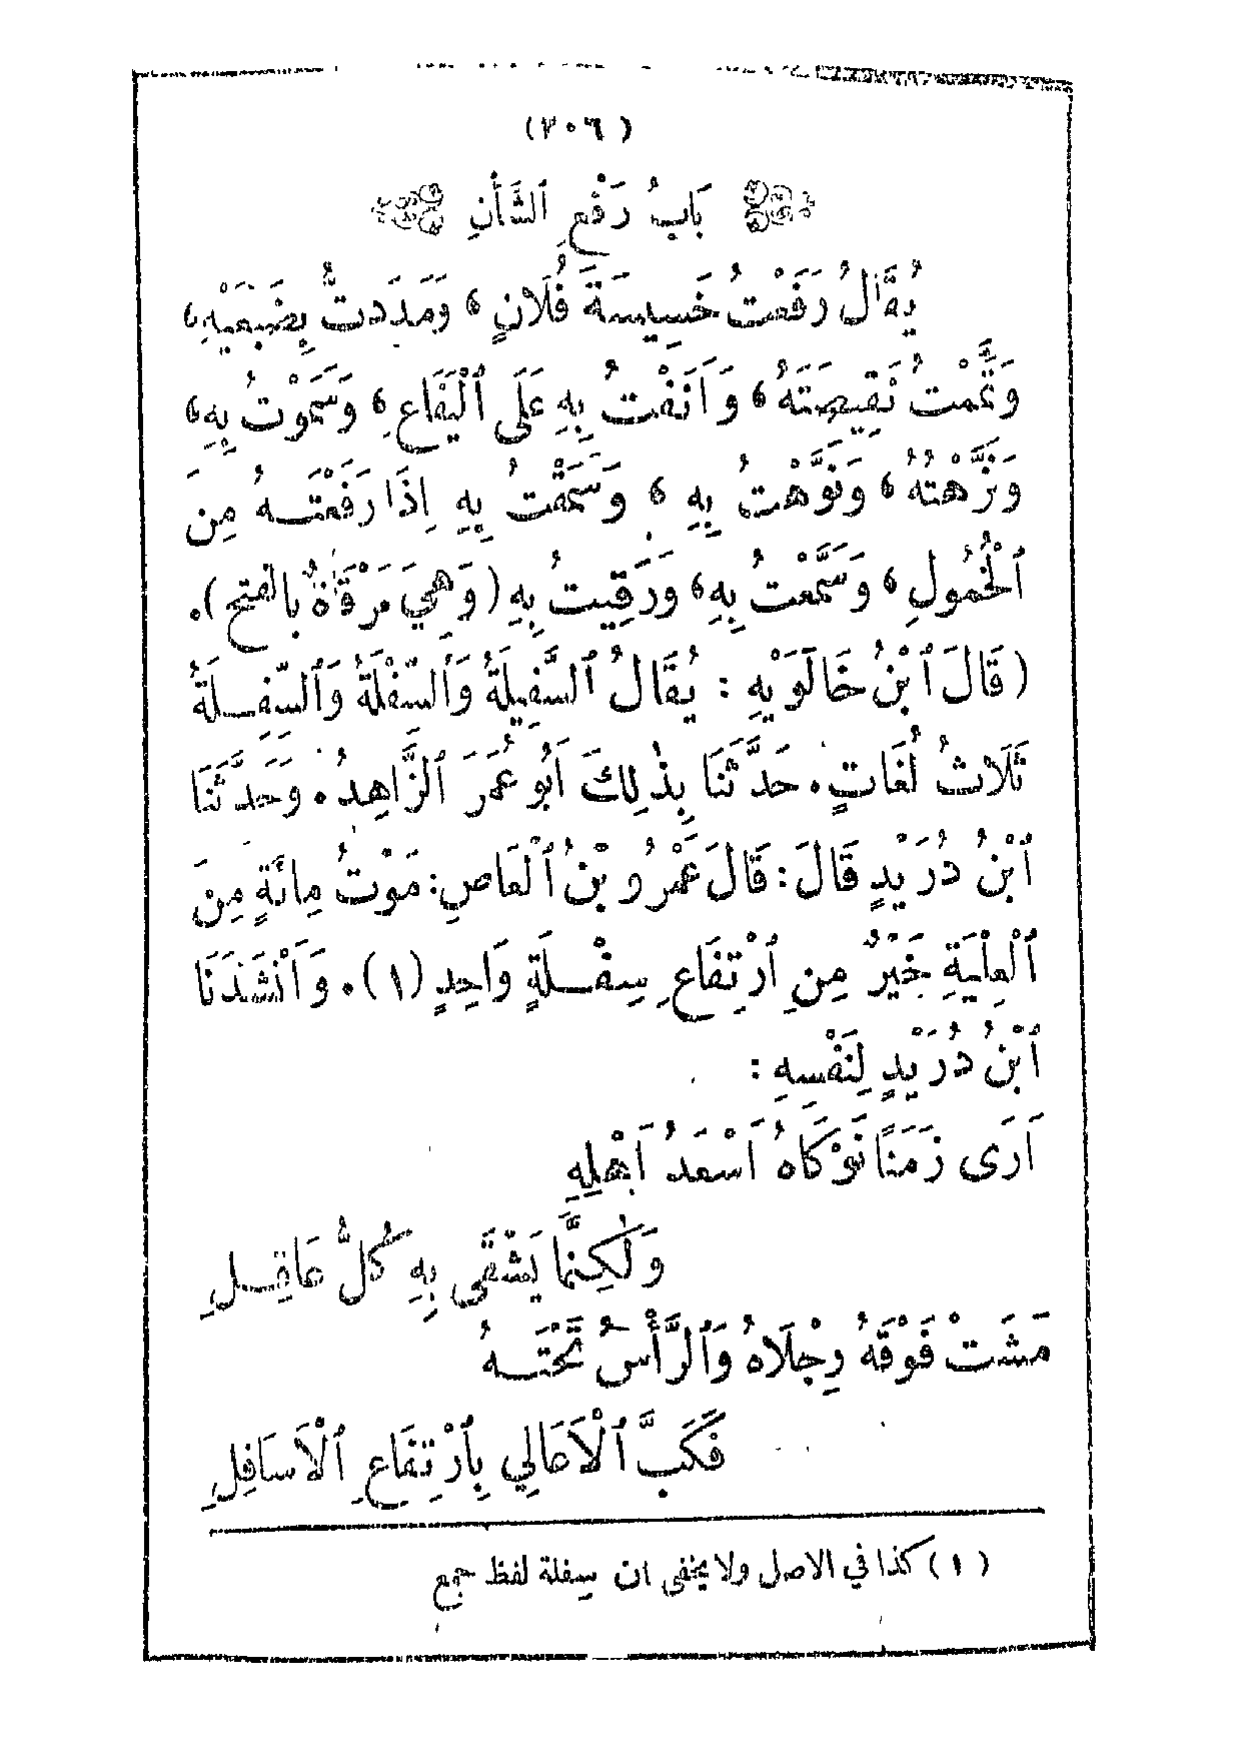 (٢٠٦)
بَابُ رَفْعِ ٱلشَّأْنِ
يُقَالُ رَفَعْتُ خَسِيسَةَ فُلَانٍ ، وَمَدَدتُّ بِضَبْعَيْهِ ،
وَتَمَّمْتُ نَقِيصَتَهُ ، وَاَنَفْتُ بِهِ عَلَى ٱلْيَفَاعِ ، وَسَمَوْتُ بِهِ ،
وَنَزَّهْتُهُ ، وَنَوَّهْتُ بِهِ ، وَسَمَقْتُ بِهِ اِذَا رَفَعْتَهُ مِنَ
ٱلْخُمُولِ ، وَسَمَّعْتُ بِهِ ، وَرَقِيتُ بِهِ (وَهِيَ مَرْقَاةٌ بالفتح) .
(قَالَ ٱبْنُ خَالَوَيْهِ : يُقَالُ ٱلسَّفِيلَةُ وَٱلسِّفْلَةُ وَٱلسِّفِلَةُ
ثَلَاثُ لُغَاتٍ . حَدَّثَنَا بِذٰلِكَ اَبُو عُمَرَ ٱلزَّاهِدُ . وَحَدَّثَنَا
ٱبْنُ دُرَيْدٍ قَالَ : قَالَ عَمْرُو بْنُ ٱلْعَاصِ : مَوْتُ مِائَةٍ مِنَ
ٱلْعِلْيَةِ خَيْرٌ مِنِ ٱرْتِفَاعِ سِفْلَةٍ وَاحِدٍ (١) . وَاَنْشَدَنَا
ٱبْنُ دُرَيْدٍ لِنَفْسِهِ :
اَرَى زَمَنًا نَوْكَاهُ اَسْعَدُ اَهْلِهِ
وَلٰكِنَّمَا يَشْقَى بِهِ كُلُّ عَاقِلِ
مَشَتْ فَوْقَهُ رِجْلَاهُ وَٱلرَّأْسُ تَحْتَهُ
فَكَبَّ ٱلْاَعَالِي بِٱرْتِفَاعِ ٱلْاَسَافِلِ
(١) كذا في الاصل ولا يخفى ان سِفلة لفظ جمع